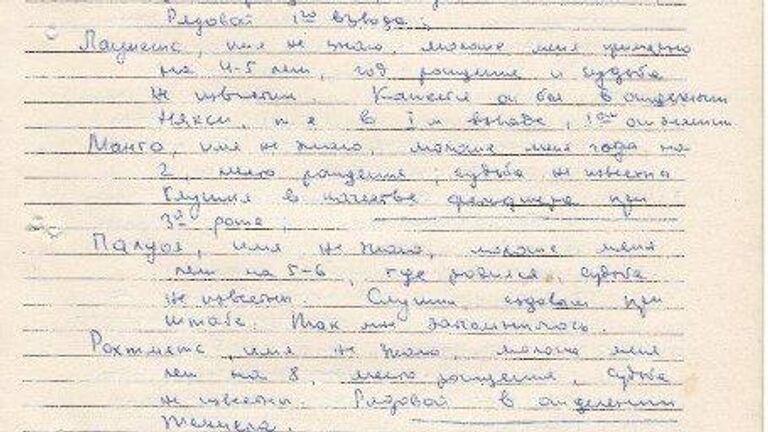 Рядовой 1го взвода;
Лауметс, имя не знаю, моложе меня примерно
на 4-5 лет, год рождения и судьба
не известны. Кажется он был в отделении
Някси, т.е. в I м взводе, 1ом отделении.
Манго, имя не знаю, моложе меня года на
2, место рождения, судьба не известна
Служил в качестве фельдшера при
3й роте;
Палуоя, имя не знаю, моложе меня
лет на 5-6, где родился, судьба
не известны. Служил ездовым при
штабе. Так мне запомнилось.
Рохтметс, имя не знаю, моложе меня
лет на 8, место рождения, судьба
не известны. Рядовой в отделении